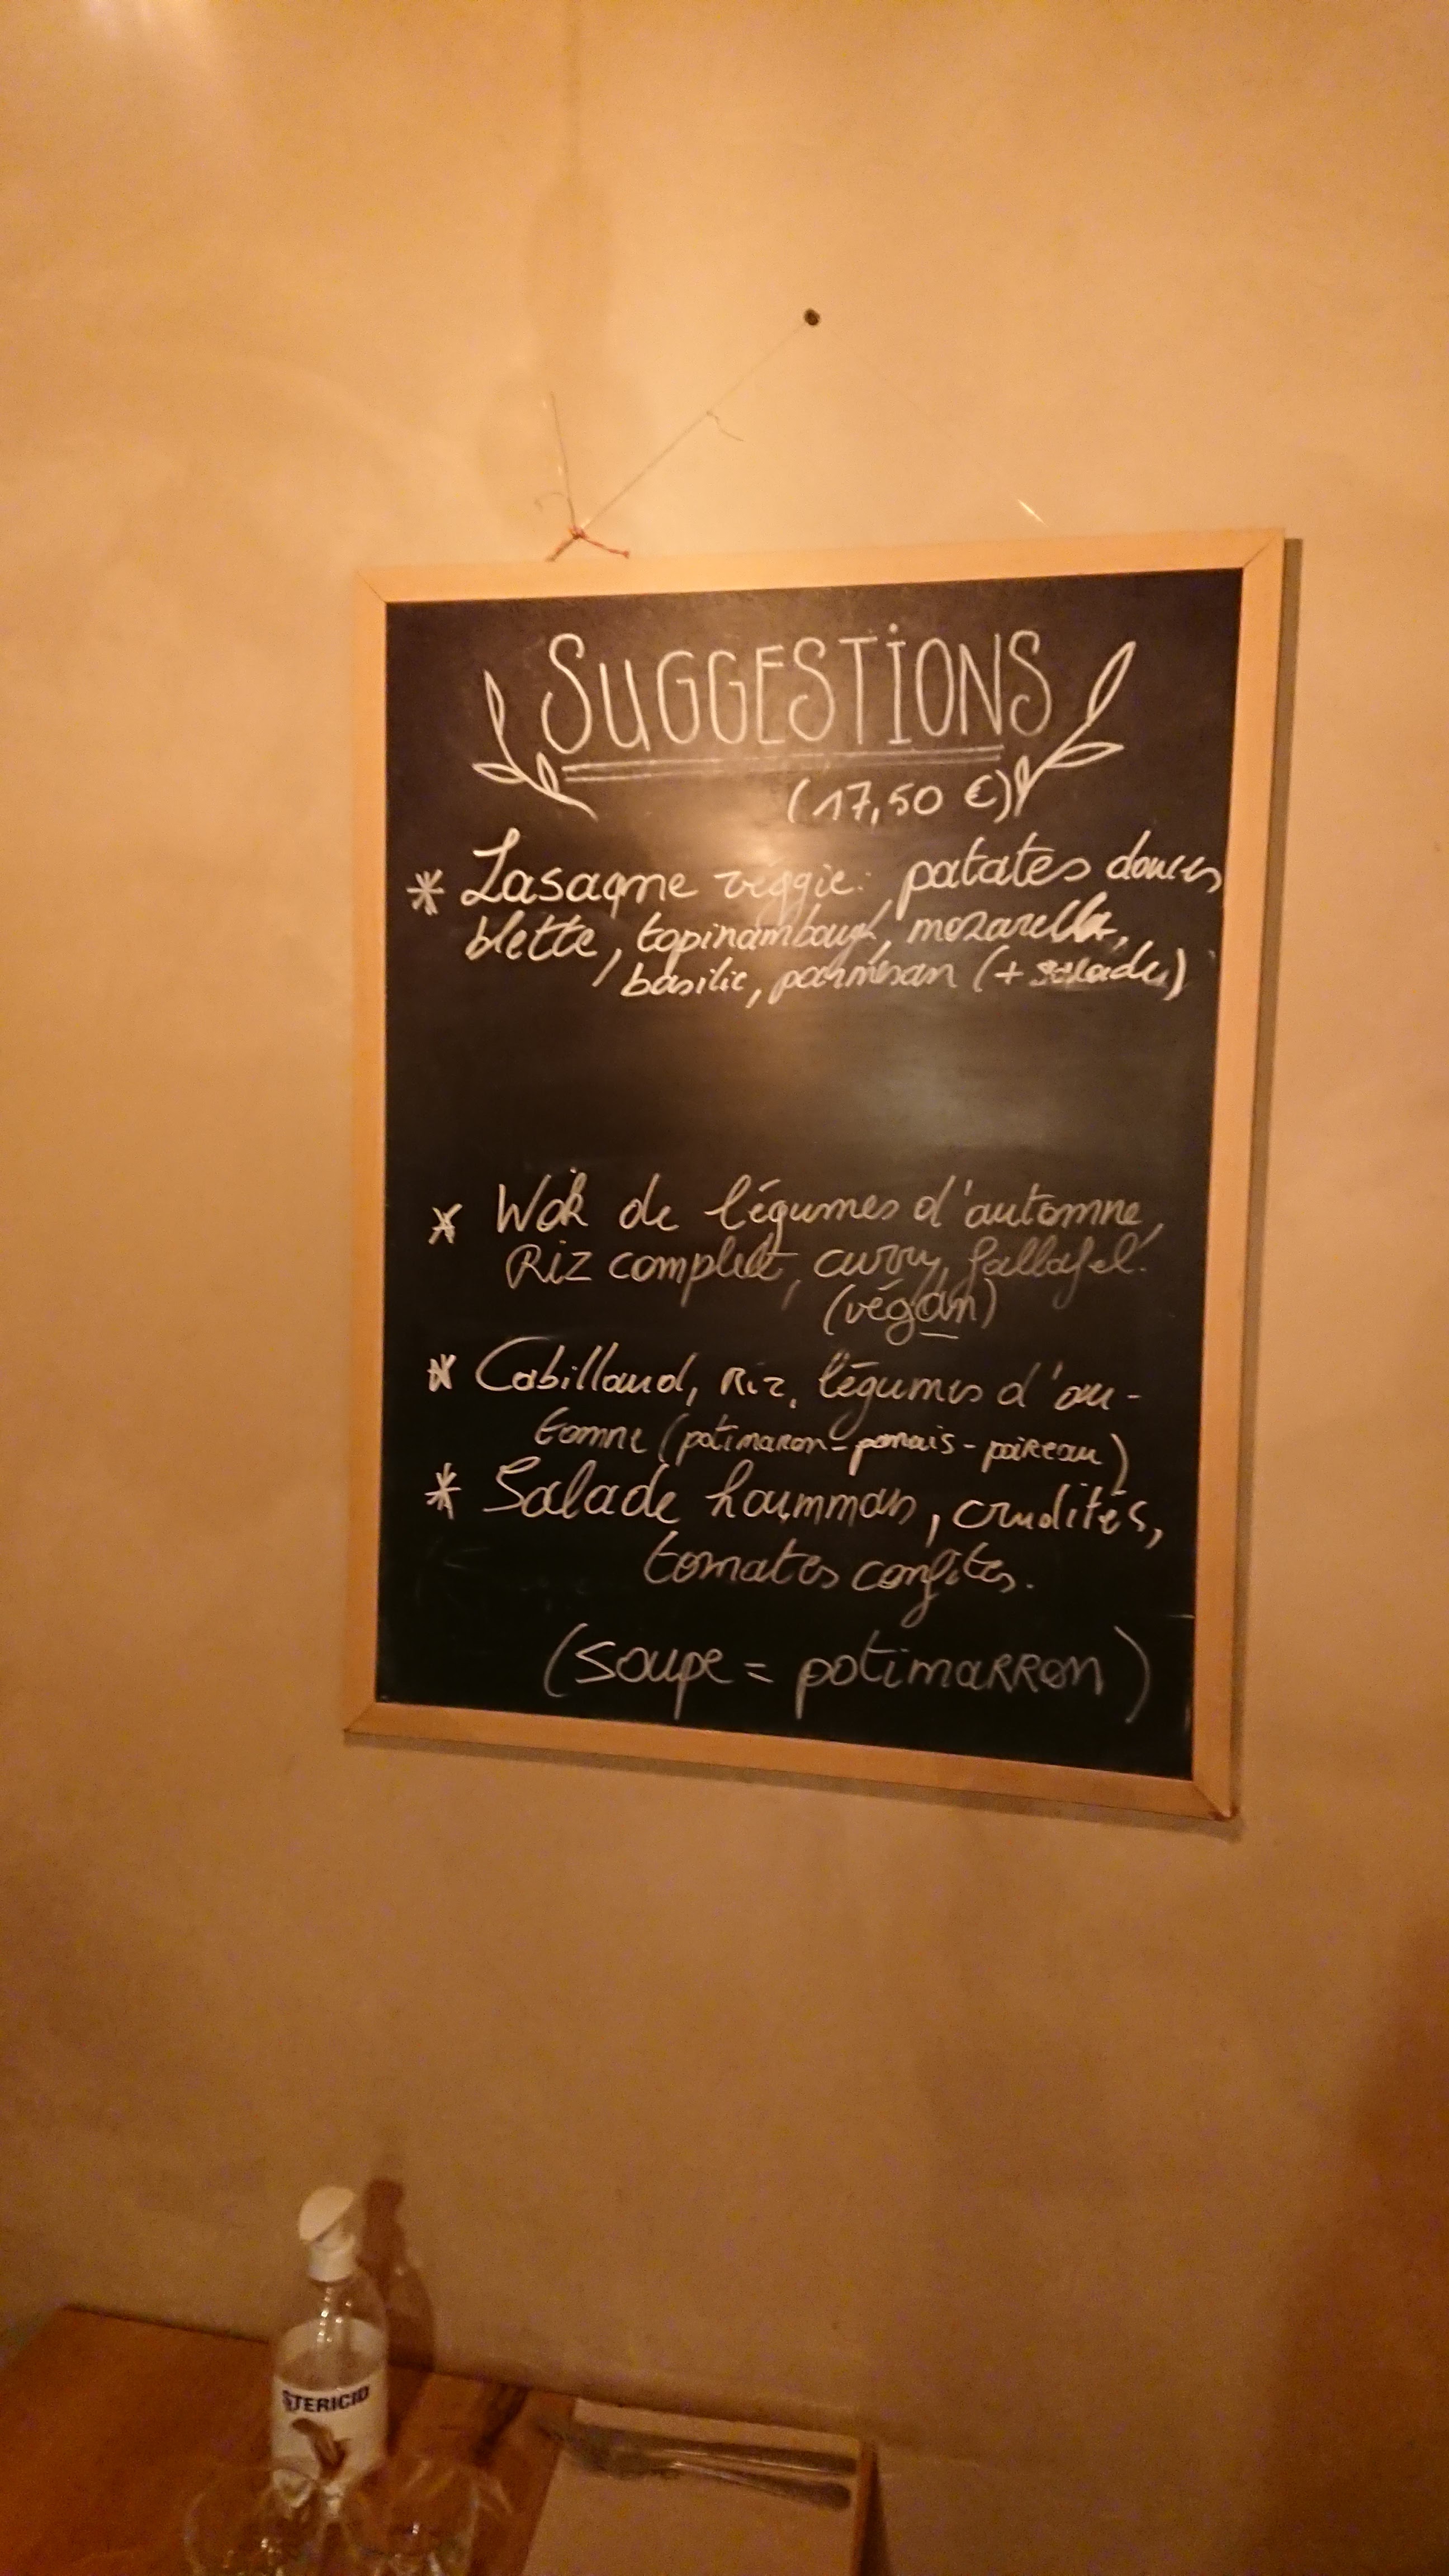 SUGGESTIONS
(17,50 €)
* Lasagne véggie: patates douces
blette, topinambour, mozarella,
basilic, parmesan (+ salade)
* Wok de légumes d'automne,
Riz complet, curry, fallafel.
(végan)
* Cabillaud, Riz, légumes d'au-
tomne (potimaron-panais-poireau)
* Salade hoummous, crudités,
tomates confites.
(soupe = potimarron)
STERICID